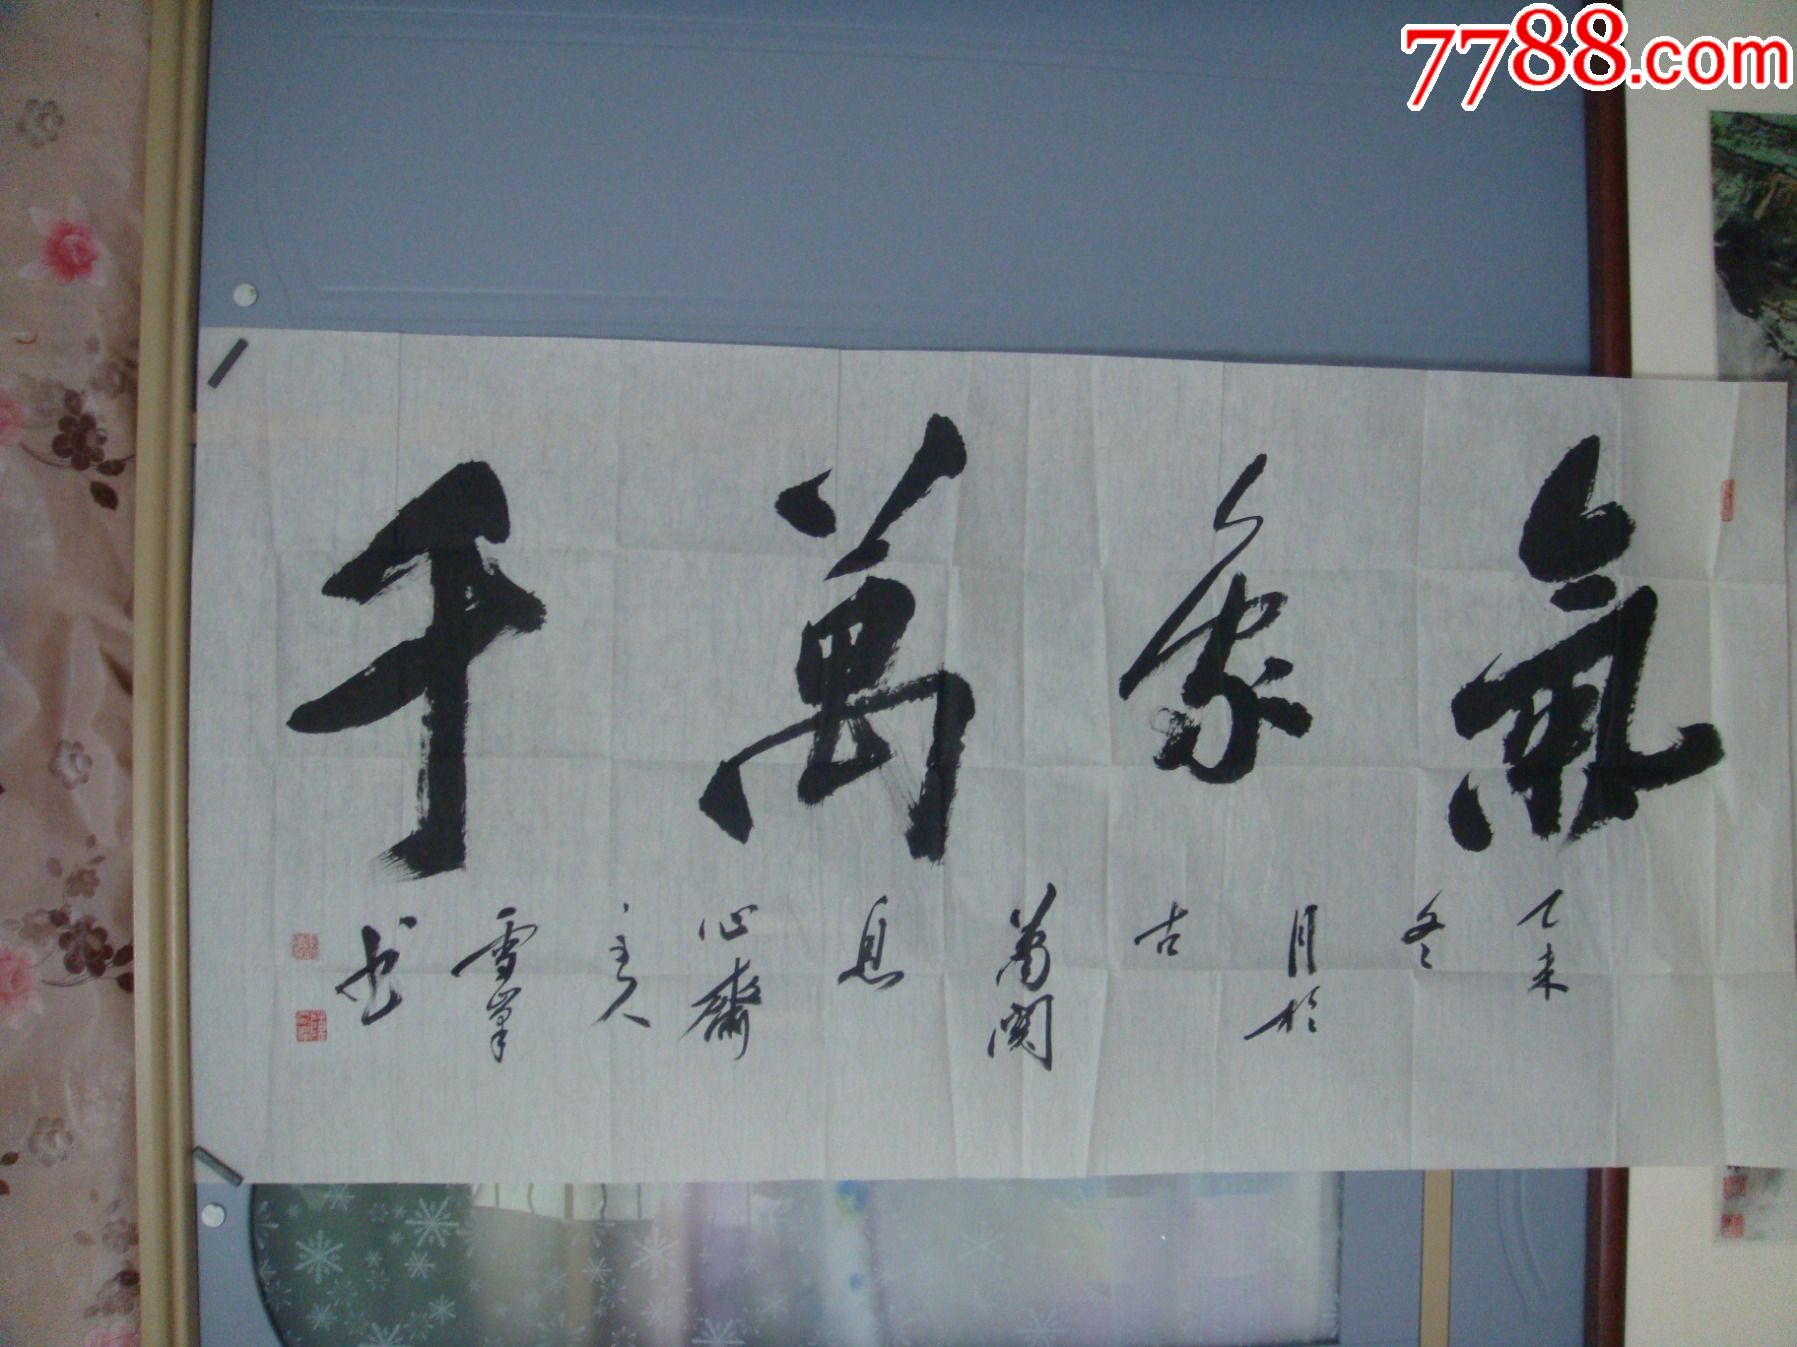 7788.com
氣象萬千
乙未
冬
月於
古
萬閣
息
心齋
主人
雪峯
书